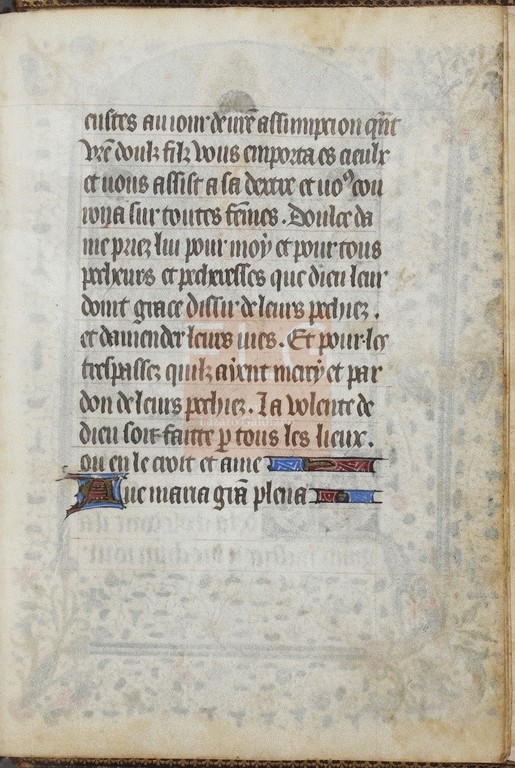 eustes au iour de vr̄e assumpcion qn̄t
vr̄e doulz filz vous emporta es cieulx
et vous assist a sa dextre et voꝯ cou
ronna sur toutes fēmes. Doulce da
me priez lui pour moy et pour tous
pecheurs et pecheresses que dieu leur
doint grace dissir de leurs pechiez.
et damender leurs vies. Et pour les
trespassez quilz ayent mercy et par
don de leurs pechiez. La volente de
dieu soit faitte p̄ tous les lieux.
ou en le croit et ame
Aue maria grā plena